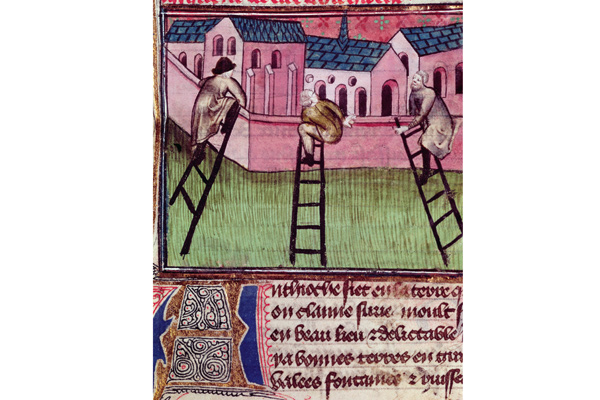 Anthioche siet en la terre q
on claime surie moult
en beau lieu & delictable
ya bonnes terres en
valees fontaines & ruisse